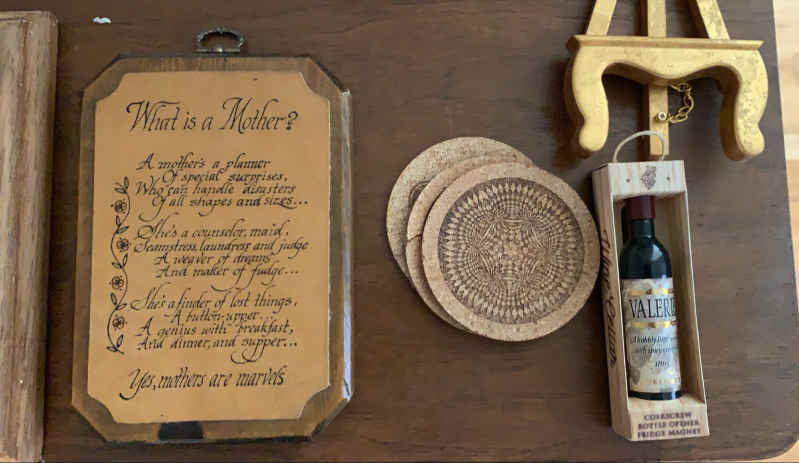 What is a Mother?
A mother's a planner
Of special surprises,
Who can handle disasters
Of all shapes and sizes...
She's a counselor, maid,
Seamstress, laundress and judge
A weaver of dreams
And maker of fudge...
She's a finder of lost things,
A button-upper...
A genius with breakfast,
And dinner, and supper...
Yes, mothers are marvels
VALERIE
A bubbly
with spicy
CORKSCREW
BOTTLE OPENER
FRIDGE MAGNET